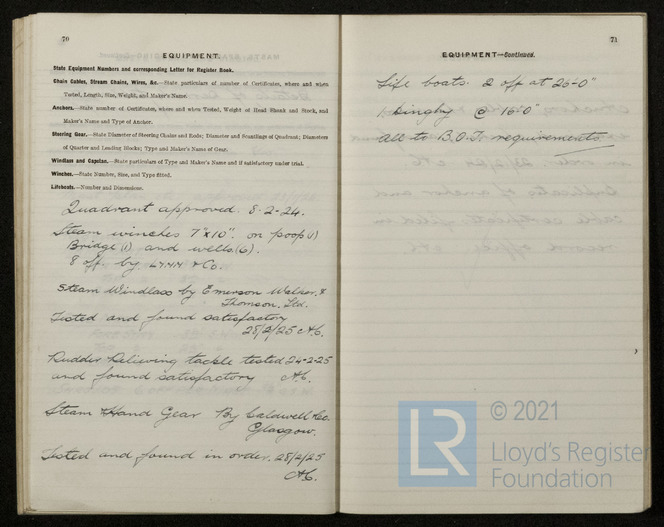 70
EQUIPMENT.
State Equipment Numbers and corresponding Letter for Register Book.
Chain Cables, Stream Chains, Wires, &c.—State particulars of number of Certificates, where and when
Tested, Length, Size, Weight, and Maker's Name.
Anchors.—State number of Certificates, where and when Tested, Weight of Head Shank and Stock, and
Maker's Name and Type of Anchor.
Steering Gear.—State Diameter of Steering Chains and Rods; Diameter and Scantlings of Quadrant; Diameters
of Quarter and Leading Blocks; Type and Maker's Name of Gear.
Windlass and Capstan.—State particulars of Type and Maker's Name and if satisfactory under trial.
Winches.—State Number, Size, and Type fitted.
Lifeboats.—Number and Dimensions.
Quadrant approved. 8-2-24.
Steam winches 7"x10". on poop (1)
Bridge (1) and wells (6).
8 off. by & Co.
Steam Windlass by Emerson Walker &
Thomson. Ltd.
Tested and found satisfactory
28/2/25
Rudder Relieving tackle tested 24-2-25
and found satisfactory
Steam & Hand Gear By Caldwell & Co.
Glasgow.
Tested and found in order. 28/2/25
71
EQUIPMENT—Continued.
Life boats. 2 off at 26'-0"
1 Dinghy @ 16'-0"
All to B.O.T. requirements
LR
© 2021
Lloyd's Register
Foundation